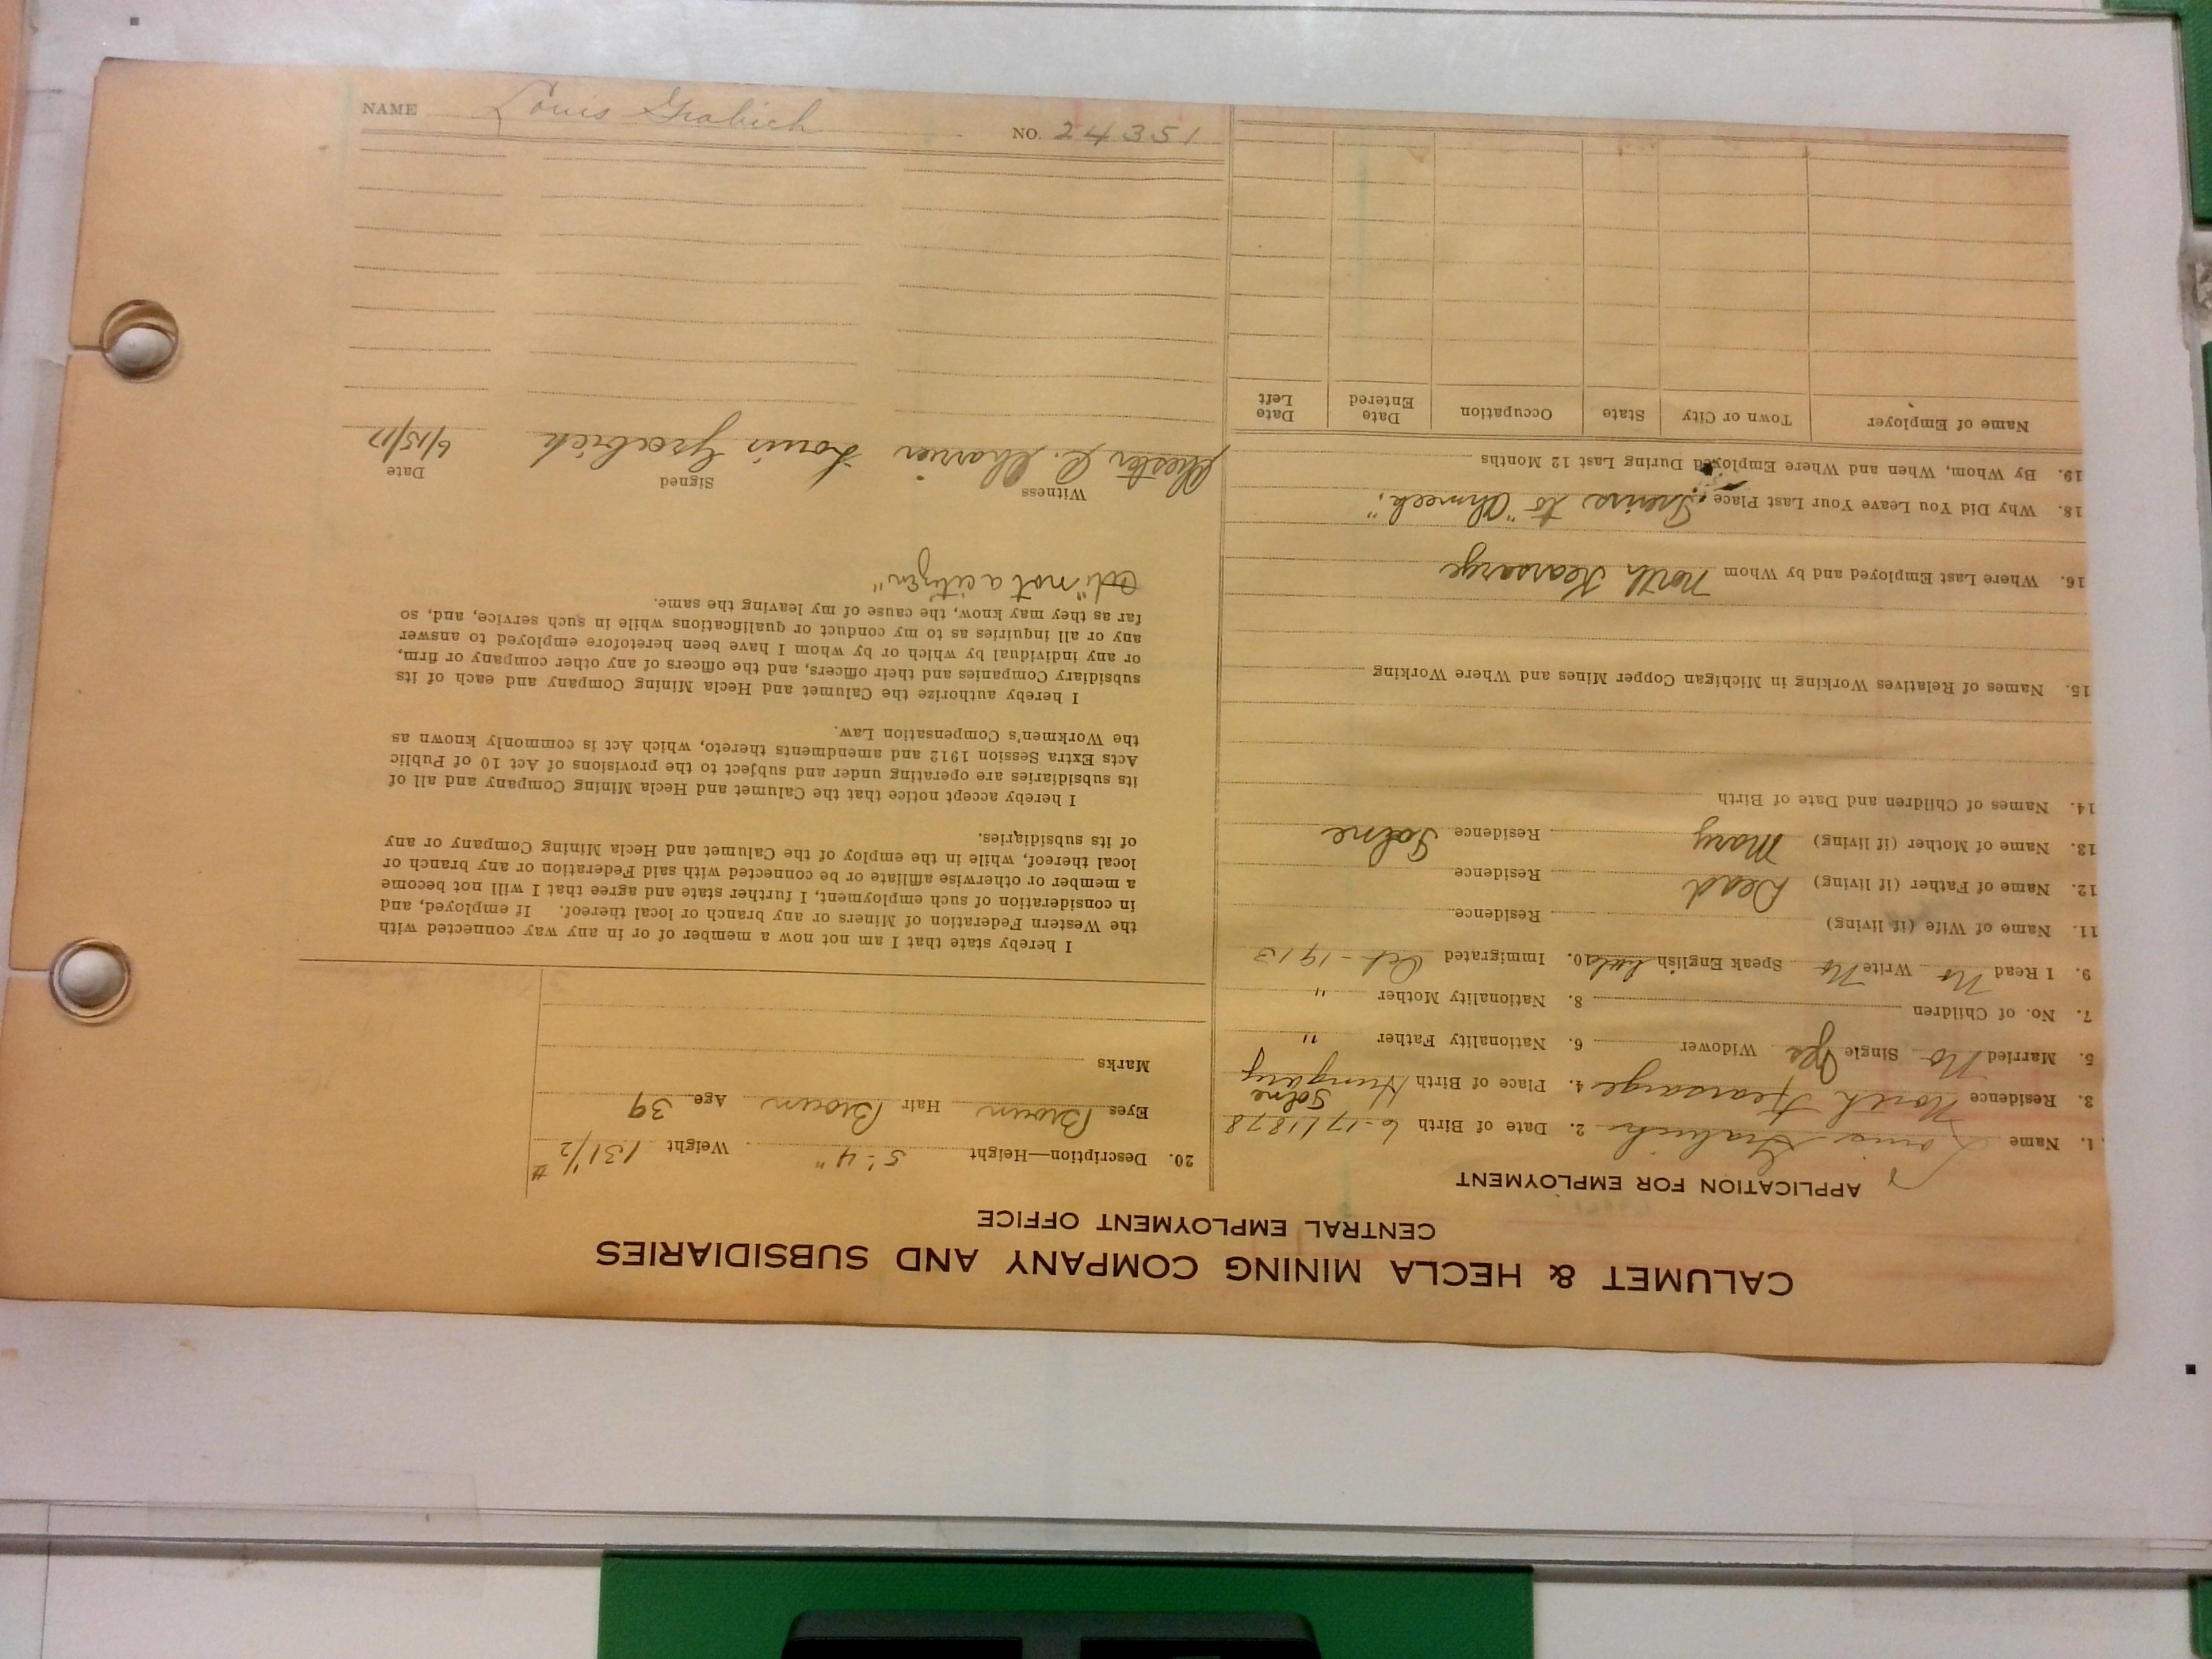 CALUMET & HECLA MINING COMPANY AND SUBSIDIARIES
CENTRAL EMPLOYMENT OFFICE
APPLICATION FOR EMPLOYMENT
1. Name Louis Grabich 2. Date of Birth 6-17/1878
3. Residence North Kearsarge 4. Place of Birth Hungary
5. Married No Single Yes Widower 6. Nationality Father "
7. No. of Children 8. Nationality Mother "
9. I Read No Write No Speak English little 10. Immigrated Oct-1913
11. Name of Wife (if living) Residence
12. Name of Father (if living) Dead Residence
13. Name of Mother (if living) Mary Residence
14. Names of Children and Date of Birth
15. Names of Relatives Working in Michigan Copper Mines and Where Working
16. Where Last Employed and by Whom North Kearsarge
18. Why Did You Leave Your Last Place to "Ahmeek."
19. By Whom, When and Where Employed During Last 12 Months
Name of Employer Town or City State Occupation Date Entered Date Left
20. Description—Height 5'-4" Weight 131 1/2 #
Eyes Brown Hair Brown Age 39
Marks
I hereby state that I am not now a member of or in any way connected with
the Western Federation of Miners or any branch or local thereof. If employed, and
in consideration of such employment, I further state and agree that I will not become
a member or otherwise affiliate or be connected with said Federation or any branch or
local thereof, while in the employ of the Calumet and Hecla Mining Company or any
of its subsidiaries.
I hereby accept notice that the Calumet and Hecla Mining Company and all of
its subsidiaries are operating under and subject to the provisions of Act 10 of Public
Acts Extra Session 1912 and amendments thereto, which Act is commonly known as
the Workmen's Compensation Law.
I hereby authorize the Calumet and Hecla Mining Company and each of its
subsidiary Companies and their officers, and the officers of any other company or firm,
or any individual by which or by whom I have been heretofore employed to answer
any or all inquiries as to my conduct or qualifications while in such service, and, so
far as they may know, the cause of my leaving the same.
"not a citizen"
Witness Signed Date
Chester C. Louis Grabich 6/15/17
NAME Louis Grabich NO. 24351